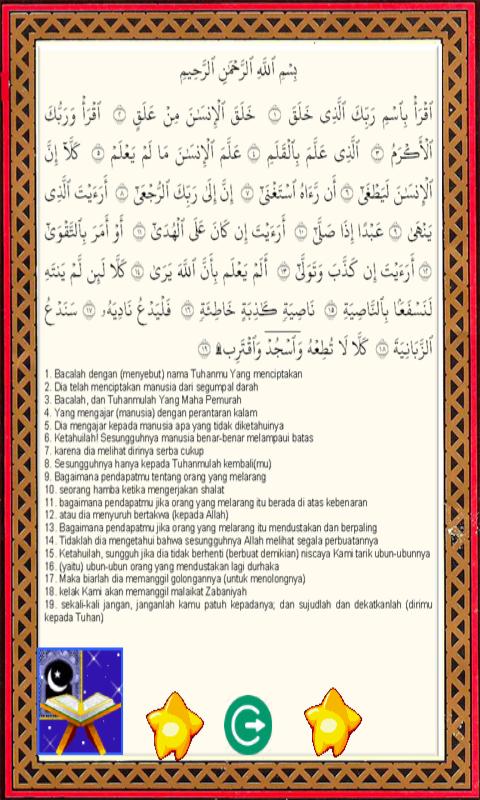 بِسْمِ ٱللَّهِ ٱلرَّحْمَٰنِ ٱلرَّحِيمِ
ٱقْرَأْ بِٱسْمِ رَبِّكَ ٱلَّذِى خَلَقَ ١ خَلَقَ ٱلْإِنسَٰنَ مِنْ عَلَقٍ ٢ ٱقْرَأْ وَرَبُّكَ
ٱلْأَكْرَمُ ٣ ٱلَّذِى عَلَّمَ بِٱلْقَلَمِ ٤ عَلَّمَ ٱلْإِنسَٰنَ مَا لَمْ يَعْلَمْ ٥ كَلَّآ إِنَّ
ٱلْإِنسَٰنَ لَيَطْغَىٰٓ ٦ أَن رَّءَاهُ ٱسْتَغْنَىٰٓ ٧ إِنَّ إِلَىٰ رَبِّكَ ٱلرُّجْعَىٰٓ ٨ أَرَءَيْتَ ٱلَّذِى
يَنْهَىٰ ٩ عَبْدًا إِذَا صَلَّىٰٓ ١٠ أَرَءَيْتَ إِن كَانَ عَلَى ٱلْهُدَىٰٓ ١١ أَوْ أَمَرَ بِٱلتَّقْوَىٰٓ
١٢ أَرَءَيْتَ إِن كَذَّبَ وَتَوَلَّىٰٓ ١٣ أَلَمْ يَعْلَم بِأَنَّ ٱللَّهَ يَرَىٰ ١٤ كَلَّا لَئِن لَّمْ يَنتَهِ
لَنَسْفَعًۢا بِٱلنَّاصِيَةِ ١٥ نَاصِيَةٍ كَٰذِبَةٍ خَاطِئَةٍ ١٦ فَلْيَدْعُ نَادِيَهُۥ ١٧ سَنَدْعُ
ٱلزَّبَانِيَةَ ١٨ كَلَّا لَا تُطِعْهُ وَٱسْجُدْ وَٱقْتَرِب۩ ١٩
1. Bacalah dengan (menyebut) nama Tuhanmu Yang menciptakan
2. Dia telah menciptakan manusia dari segumpal darah
3. Bacalah, dan Tuhanmulah Yang Maha Pemurah
4. Yang mengajar (manusia) dengan perantaran kalam
5. Dia mengajar kepada manusia apa yang tidak diketahuinya
6. Ketahuilah! Sesungguhnya manusia benar-benar melampaui batas
7. karena dia melihat dirinya serba cukup
8. Sesungguhnya hanya kepada Tuhanmulah kembali(mu)
9. Bagaimana pendapatmu tentang orang yang melarang
10. seorang hamba ketika mengerjakan shalat
11. bagaimana pendapatmu jika orang yang melarang itu berada di atas kebenaran
12. atau dia menyuruh bertakwa (kepada Allah)
13. Bagaimana pendapatmu jika orang yang melarang itu mendustakan dan berpaling
14. Tidaklah dia mengetahui bahwa sesungguhnya Allah melihat segala perbuatannya
15. Ketahuilah, sungguh jika dia tidak berhenti (berbuat demikian) niscaya Kami tarik ubun-ubunnya
16. (yaitu) ubun-ubun orang yang mendustakan lagi durhaka
17. Maka biarlah dia memanggil golongannya (untuk menolongnya)
18. kelak Kami akan memanggil malaikat Zabaniyah
19. sekali-kali jangan, janganlah kamu patuh kepadanya; dan sujudlah dan dekatkanlah (dirimu
kepada Tuhan)